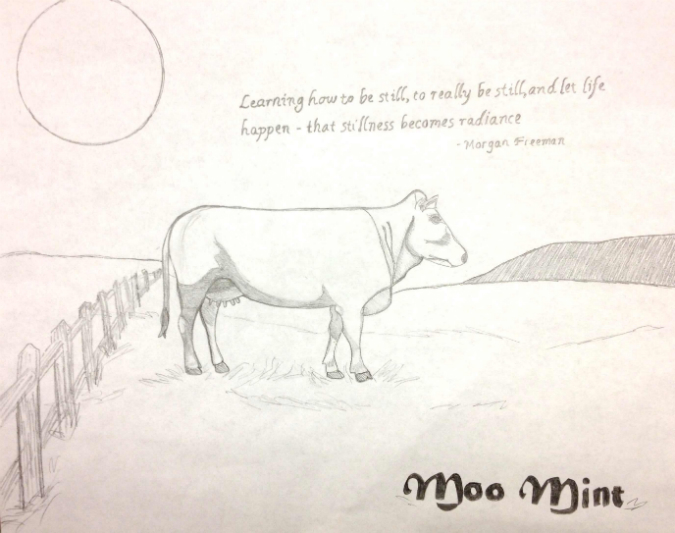 Learning how to be still, to really be still, and let life
happen - that stillness becomes radiance
- Morgan Freeman
Moo Mint